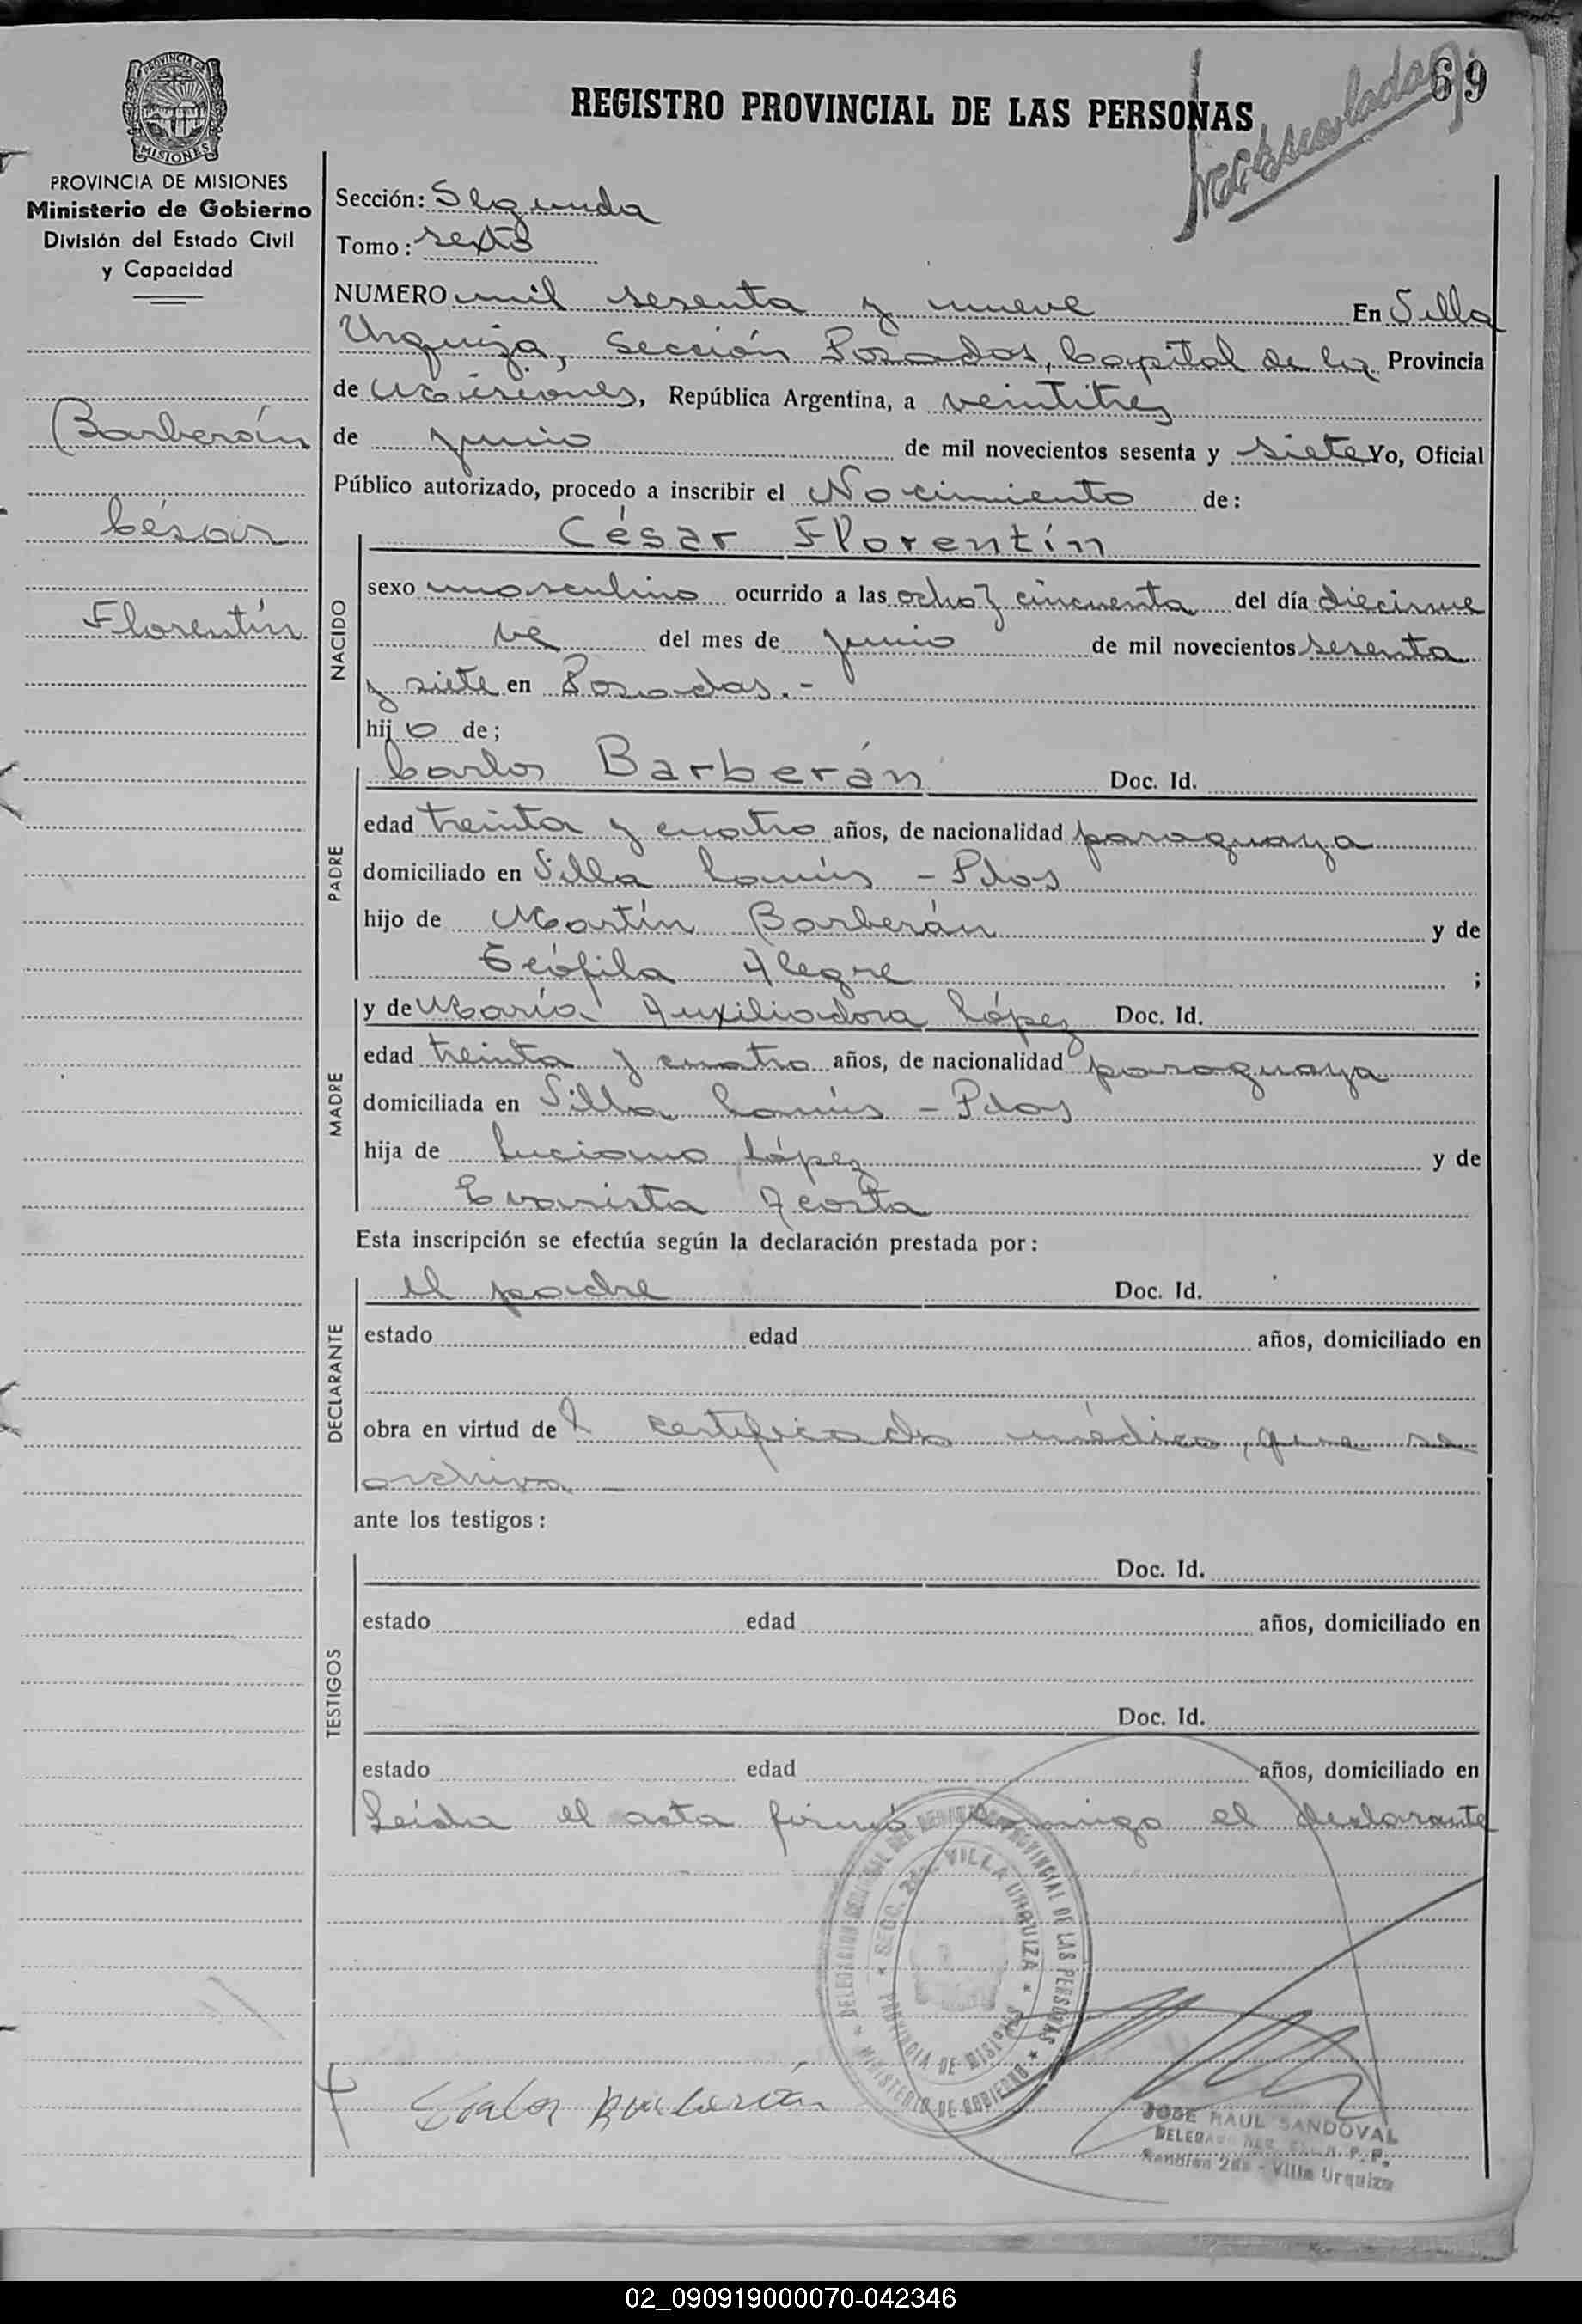 69
REGISTRO PROVINCIAL DE LAS PERSONAS
PROVINCIA DE MISIONES
PROVINCIA DE MISIONES
Ministerio de Gobierno
División del Estado Civil
y Capacidad
Barberán
César
Florentín
Sección: Segunda
Tomo: sexto
NUMERO mil sesenta y nueve En Villa
Urquiza, Sección Posadas, Capital de la Provincia
de Misiones, República Argentina, a veintitres
de junio de mil novecientos sesenta y siete Yo, Oficial
Público autorizado, procedo a inscribir el Nacimiento de:
NACIDO
César Florentín
sexo masculino ocurrido a las ocho y cincuenta del día diecinue
ve del mes de junio de mil novecientos sesenta
y siete en Posadas.-
hijo de;
PADRE
Carlos Barberán Doc. Id.
edad treinta y cuatro años, de nacionalidad paraguaya
domiciliado en Villa Lanús - Pdas
hijo de Martín Barberán y de
Teófila Alegre ;
MADRE
y de María Auxiliadora López Doc. Id.
edad treinta y cuatro años, de nacionalidad paraguaya
domiciliada en Villa Lanús - Pdas
hija de Luciano López y de
Evarista Acosta
Esta inscripción se efectúa según la declaración prestada por:
DECLARANTE
el padre Doc. Id.
estado edad años, domiciliado en
obra en virtud de l certificado médico, que se
archiva
ante los testigos:
TESTIGOS
Doc. Id.
estado edad años, domiciliado en
Doc. Id.
estado edad años, domiciliado en
Leída el acta firmó conmigo el declarante
DELEGACION REGIONAL DEL REGISTRO PROVINCIAL DE LAS PERSONAS
MINISTERIO DE GOBIERNO
SECC. 2da. VILLA URQUIZA
PROVINCIA DE MISIONES
Carlos Barberán
JOSE RAUL SANDOVAL
Sección 2da - Villa Urquiza
02_090919000070-042346